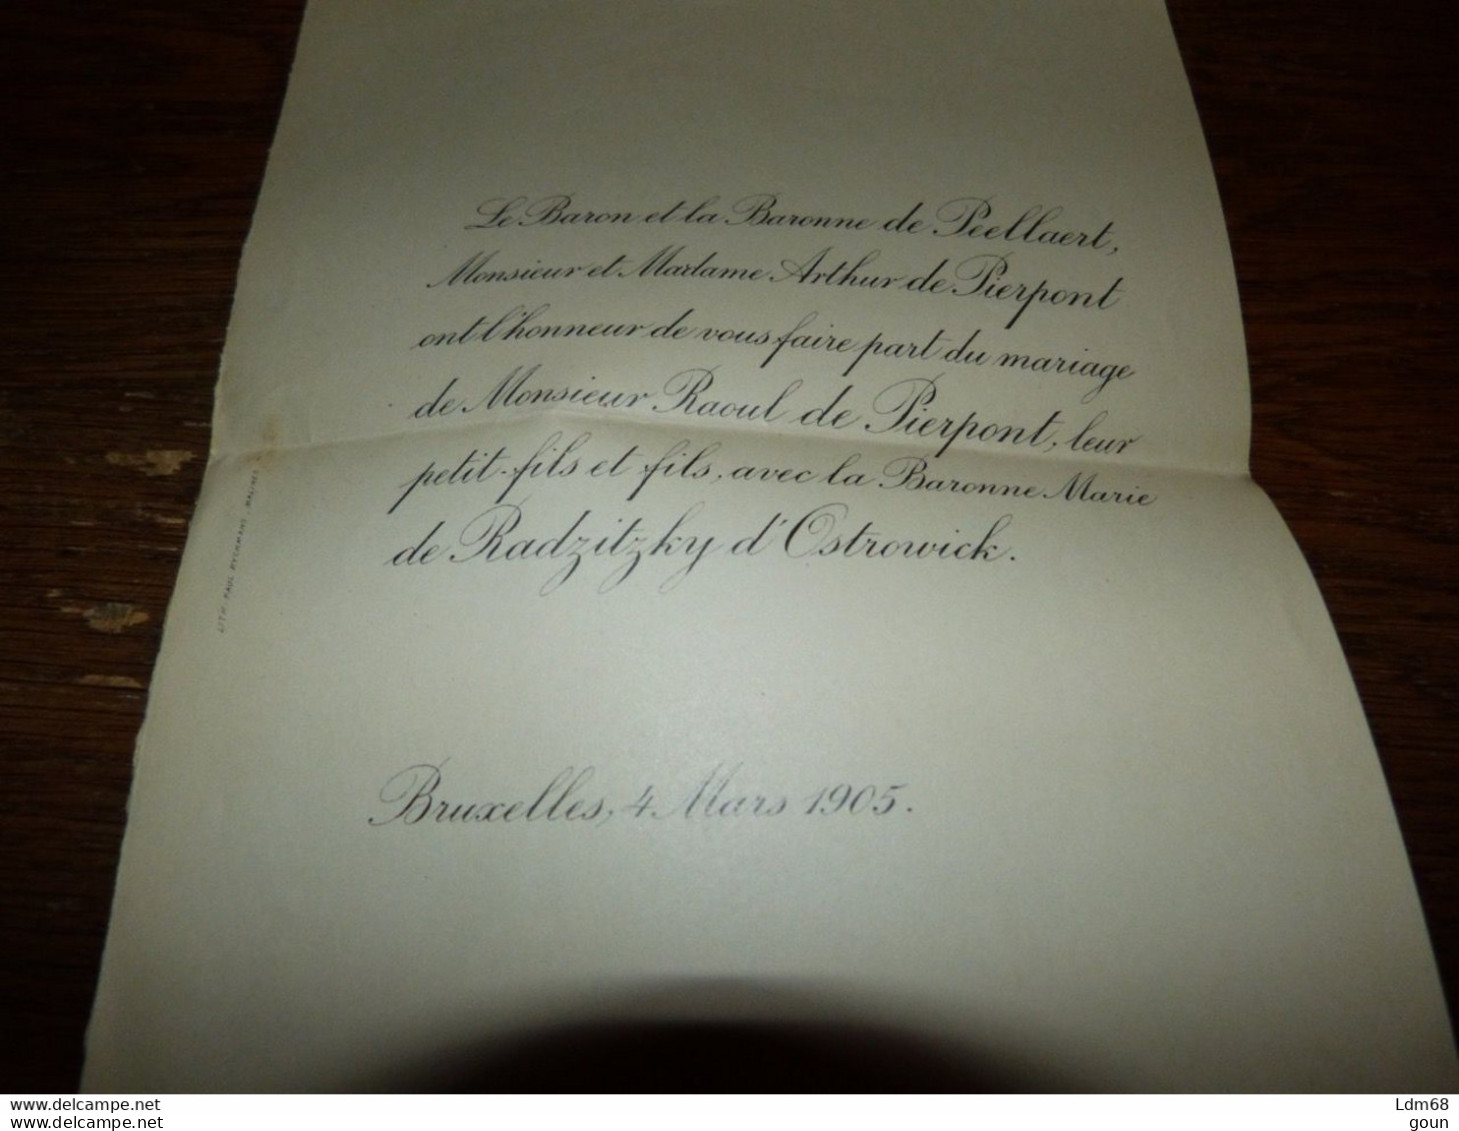 Le Baron et la Baronne de Peellaert,
Monsieur et Madame Arthur de Pierpont
ont l'honneur de vous faire part du mariage
de Monsieur Raoul de Pierpont, leur
petit-fils et fils, avec la Baronne Marie
de Radzitzky d'Ostrowick.
Bruxelles, 4 Mars 1905.
LITH. PAUL RYCKMANS, MALINES
www.delcampe.net
www.delcampe.net
Ldm68
goun